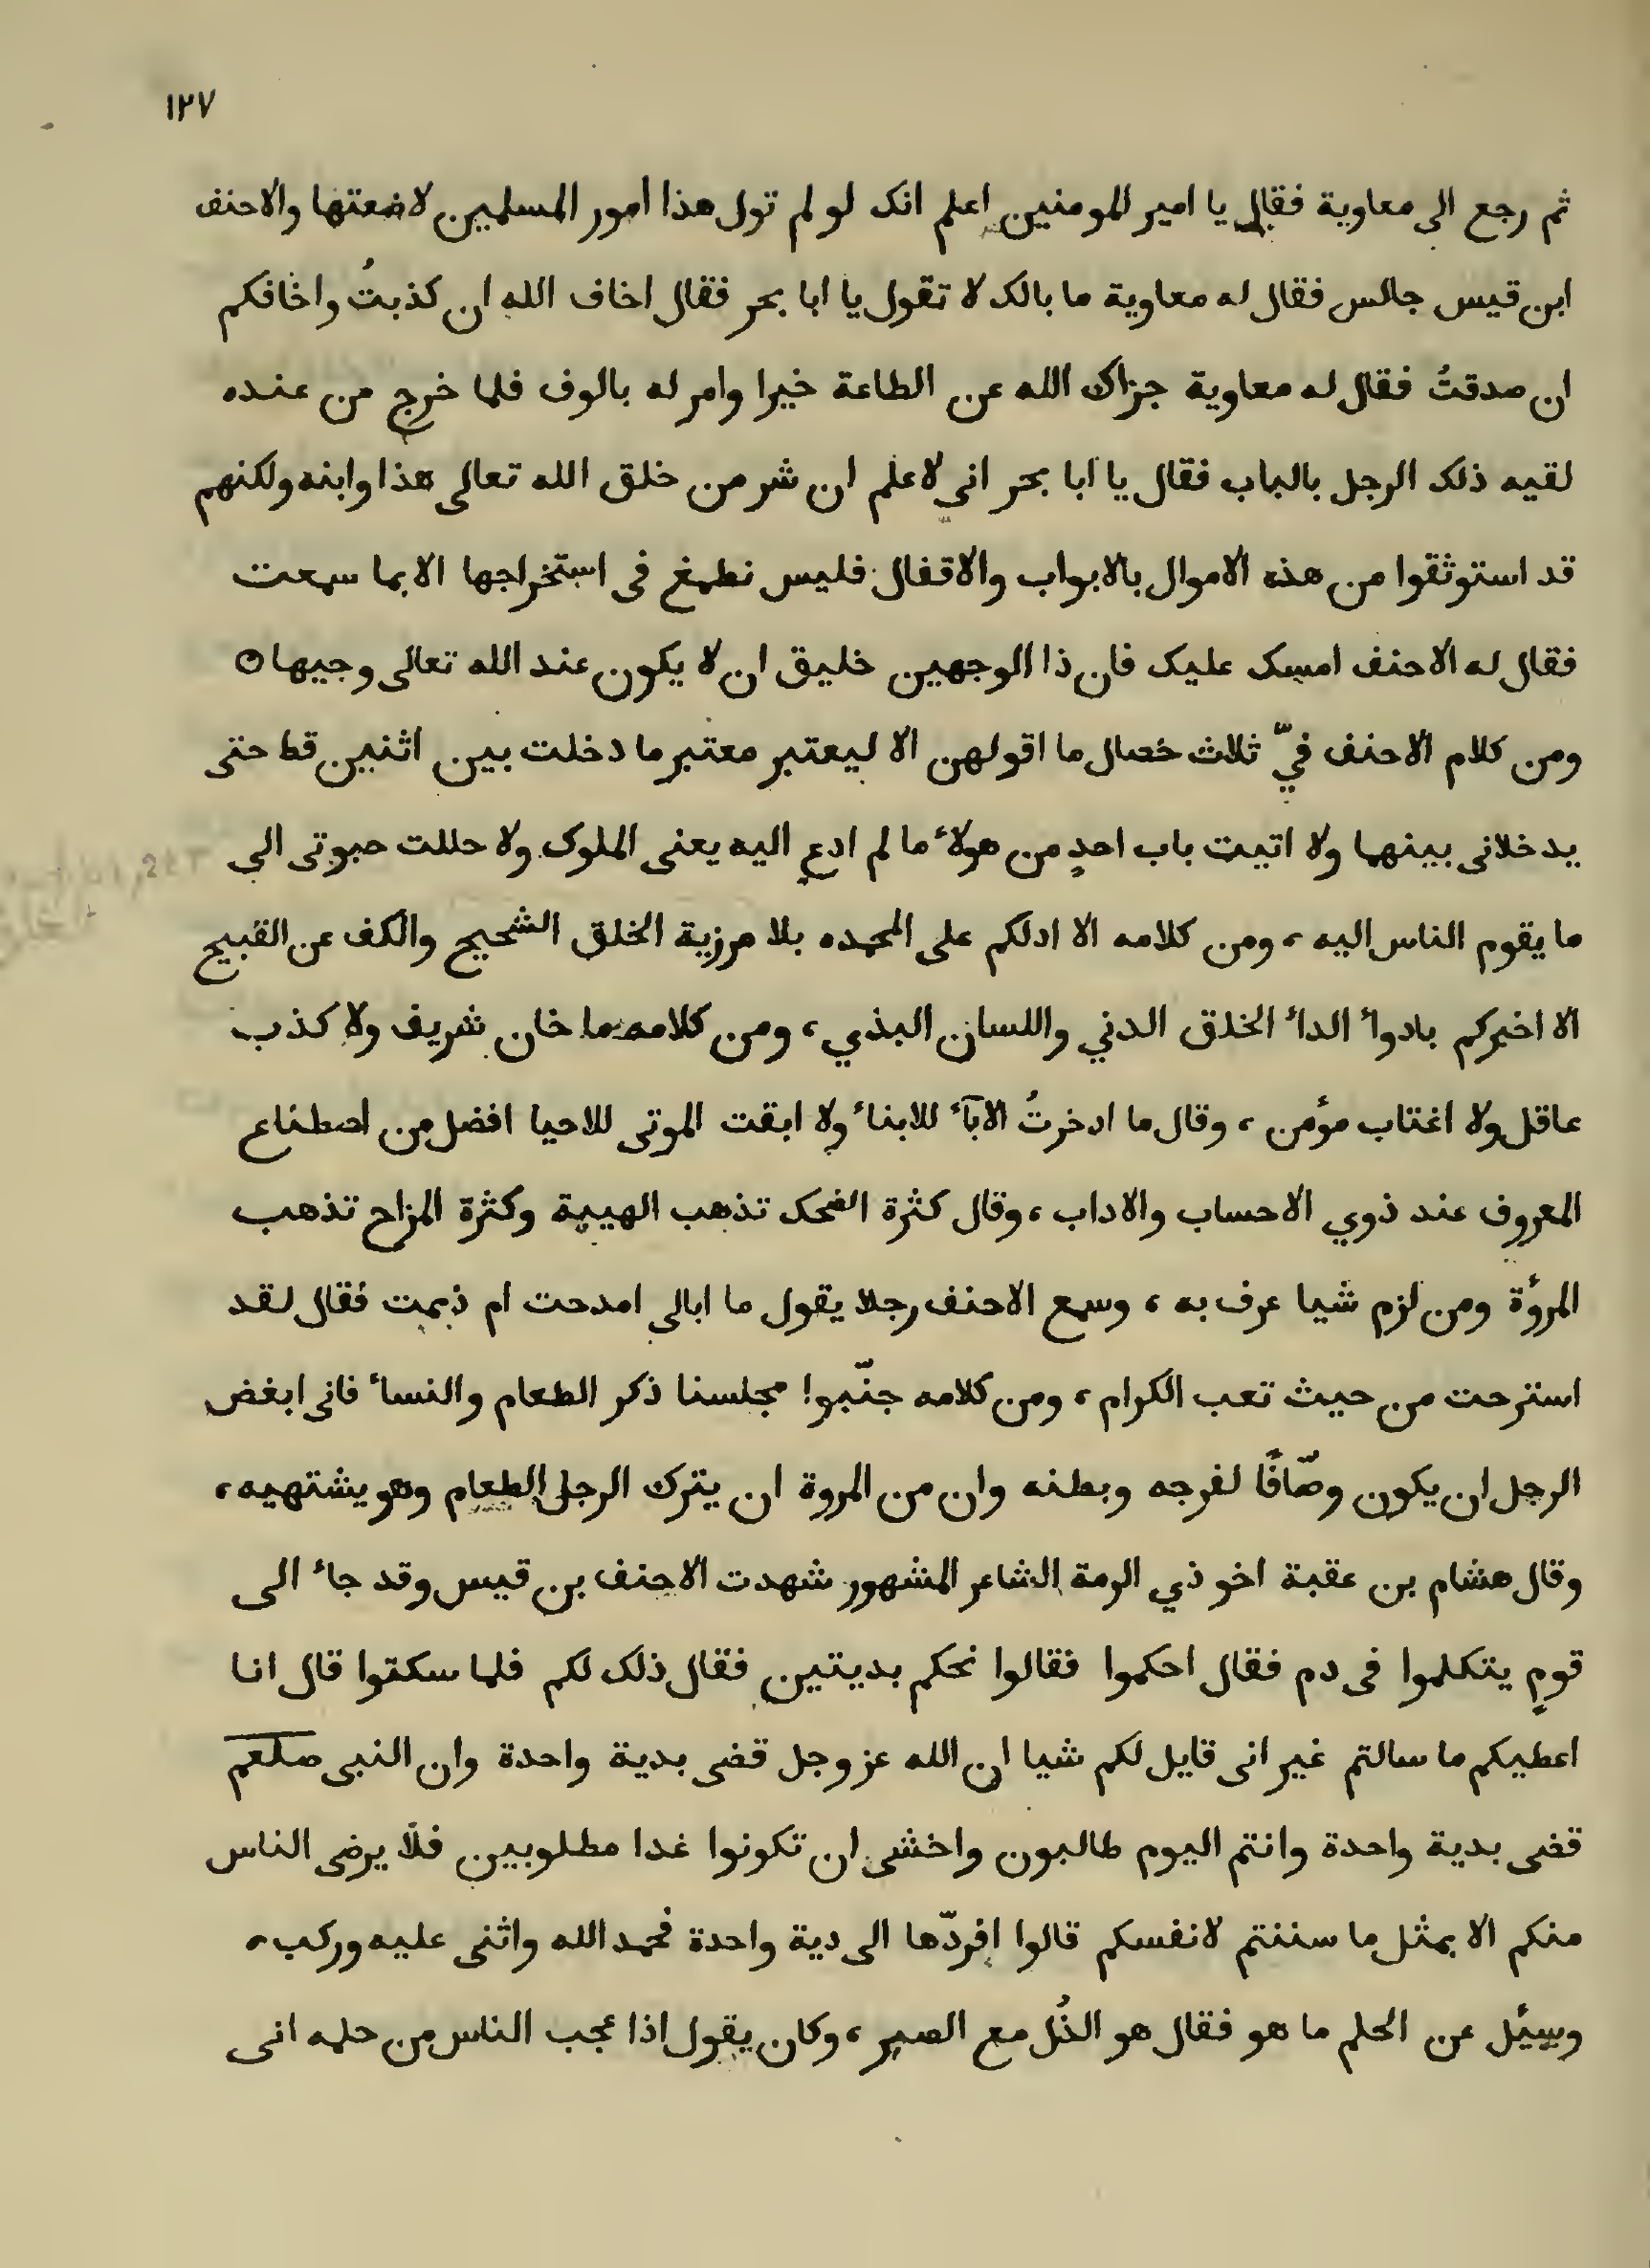 ١٢٧
ثم رجع الى معاوية فقال يا امير المومنين اعلم انك لو لم تول هذا امور المسلمين لاضعتها والاحنف
ابن قيس جالس فقال له معاوية ما بالك لا تقول يا ابا بحر فقال اخاف الله ان كذبتُ واخافكم
ان صدقتُ فقال له معاوية جزاك الله عن الطاعة خيرا وامر له بالوف فلما خرج من عنده
لقيه ذلك الرجل بالباب فقال يا ابا بحر اني لاعلم ان شر من خلق الله تعالى هذا وابنه ولكنهم
قد استوثقوا من هذه الاموال بالابواب والاقفال فليس نطمع فى استخراجها الا بما سمعت
فقال له الاحنف امسك عليك فان ذا الوجهين خليق ان لا يكون عند الله تعالى وجيها ه
ومن كلام الاحنف فيّ ثلاث خصال ما اقولهن الا ليعتبر معتبر ما دخلت بين اثنين قط حتى
يدخلانى بينهما ولا اتيت باب احدٍ من هولاء ما لم ادع اليه يعنى الملوك ولا حللت حبوتى الى
ما يقوم الناس اليه ، ومن كلامه الا ادلكم على المحمده بلا مرزية الخلق الشحيح والكف عن القبيح
الا اخبركم بادواء الداء الخلق الدني واللسان البذي ، ومن كلامه ما خان شريف ولا كذب
عاقل ولا اغتاب مؤمن ، وقال ما ادخرتُ الابآء للابناء ولا ابقت الموتى للاحيا افضل من اصطناع
المعروف عند ذوي الاحساب والاداب ، وقال كثرة الضحك تذهب الهيبة وكثرة المزاح تذهب
المروّة ومن لزم شيا عرف به ، وسمع الاحنف رجلا يقول ما ابالى امدحت ام ذممت فقال لقد
استرحت من حيث تعب الكرام ، ومن كلامه جنّبوا مجلسنا ذكر الطعام والنساء فانى ابغض
الرجل ان يكون وصّافًا لفرجه وبطنه وان من المروة ان يترك الرجل الطعام وهو يشتهيه ،
وقال هشام بن عقبة اخو ذي الرمة الشاعر المشهور شهدت الاحنف بن قيس وقد جاء الى
قومٍ يتكلموا فى دم فقال احكموا فقالوا نحكم بديتين فقال ذلك لكم فلما سكتوا قال انا
اعطيكم ما سالتم غير انى قايل لكم شيا ان الله عز وجل قضى بدية واحدة وان النبى صلعم
قضى بدية واحدة وانتم اليوم طالبون واخشى ان تكونوا غدا مطلوبين فلا يرضى الناس
منكم الا بمثل ما سننتم لانفسكم قالوا افردّها الى دية واحدة فحمد الله واثنى عليه وركب ،
وسئل عن الحلم ما هو فقال هو الذُل مع الصبر ، وكان يقول اذا عجب الناس من حلمه انى